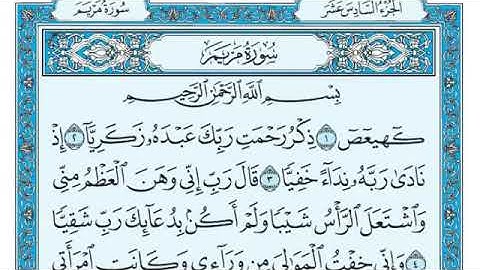 الجزء السادس عشر
سورة مريم
سُورَةُ مَرْيَمَ
بِسْمِ ٱللَّهِ ٱلرَّحْمَٰنِ ٱلرَّحِيمِ
كٓهيعٓصٓ ١ ذِكْرُ رَحْمَتِ رَبِّكَ عَبْدَهُۥ زَكَرِيَّآ ٢ إِذْ
نَادَىٰ رَبَّهُۥ نِدَآءً خَفِيًّا ٣ قَالَ رَبِّ إِنِّى وَهَنَ ٱلْعَظْمُ مِنِّى
وَٱشْتَعَلَ ٱلرَّأْسُ شَيْبًا وَلَمْ أَكُنۢ بِدُعَآئِكَ رَبِّ شَقِيًّا
٤ وَإِنِّى خِفْتُ ٱلْمَوَٰلِىَ مِن وَرَآءِى وَكَانَتِ ٱمْرَأَتِى